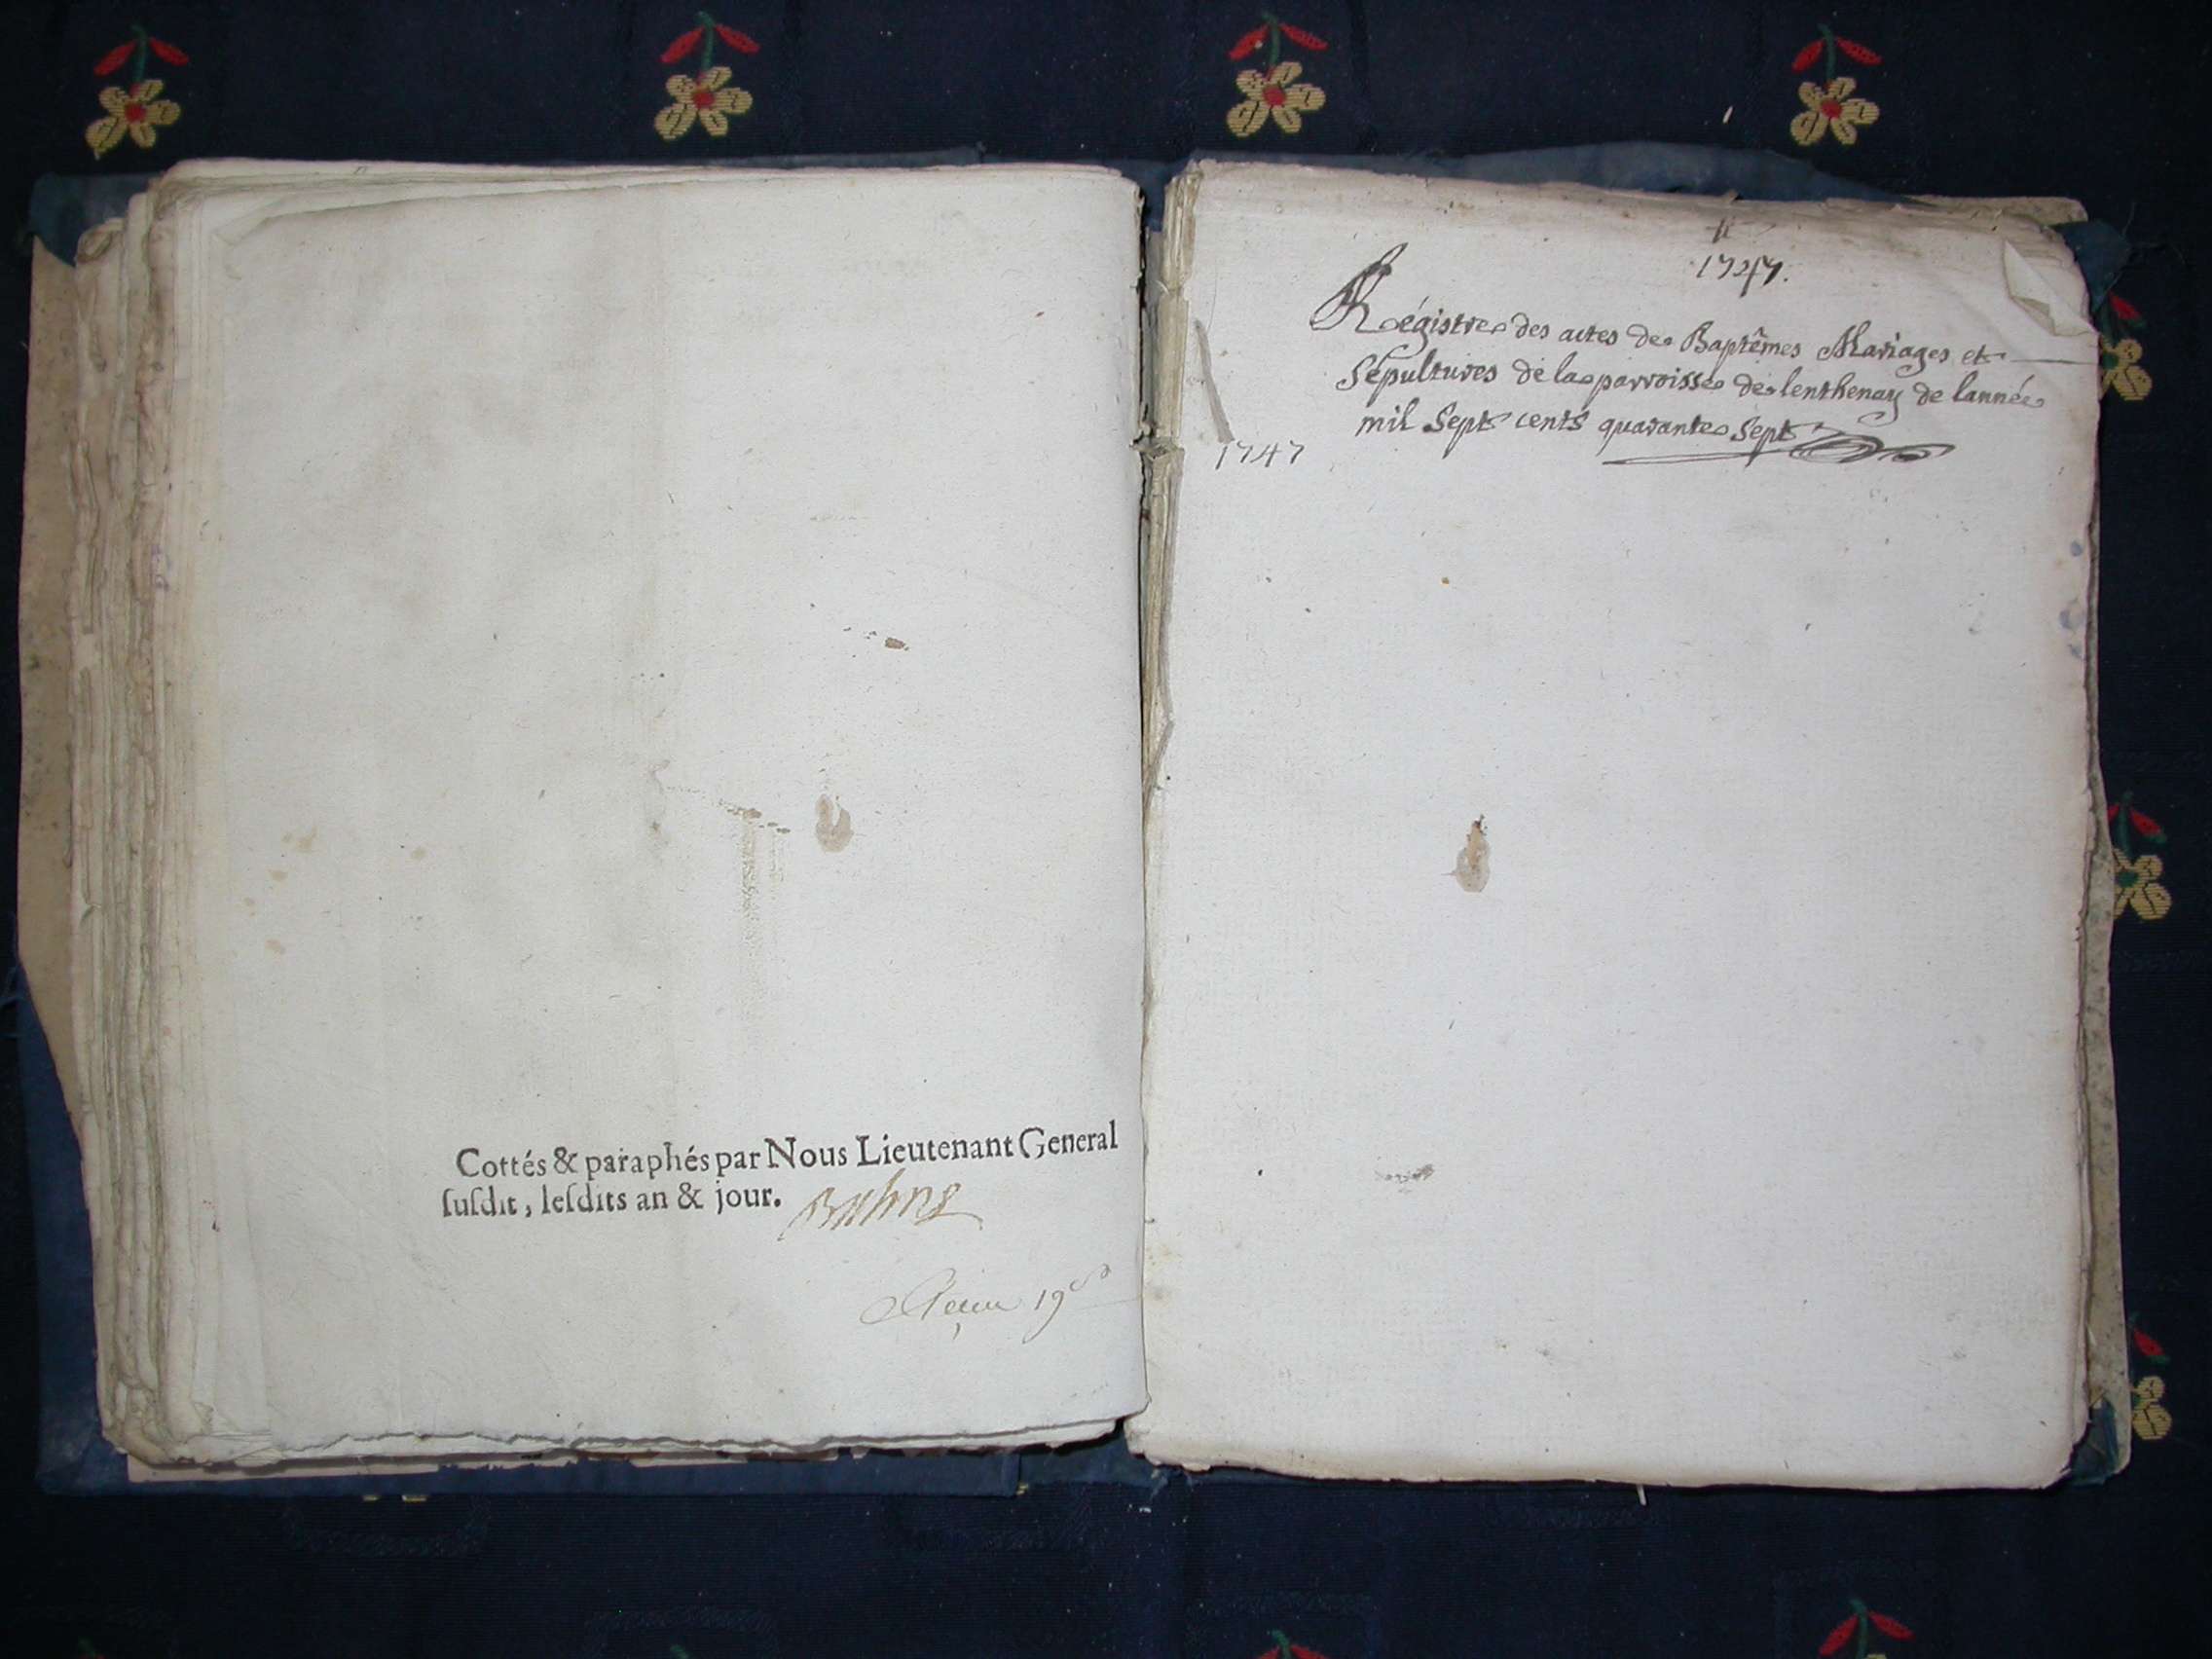 Cottés & paraphés par Nous Lieutenant General
ſuſdit, leſdits an & jour.
Reçeu 19ˢ
1747.
Régistre des actes de Baptêmes Mariages et
Sépultures de la parroisse de lenthenay de lannée
mil Sept cents quarante Sept
1747